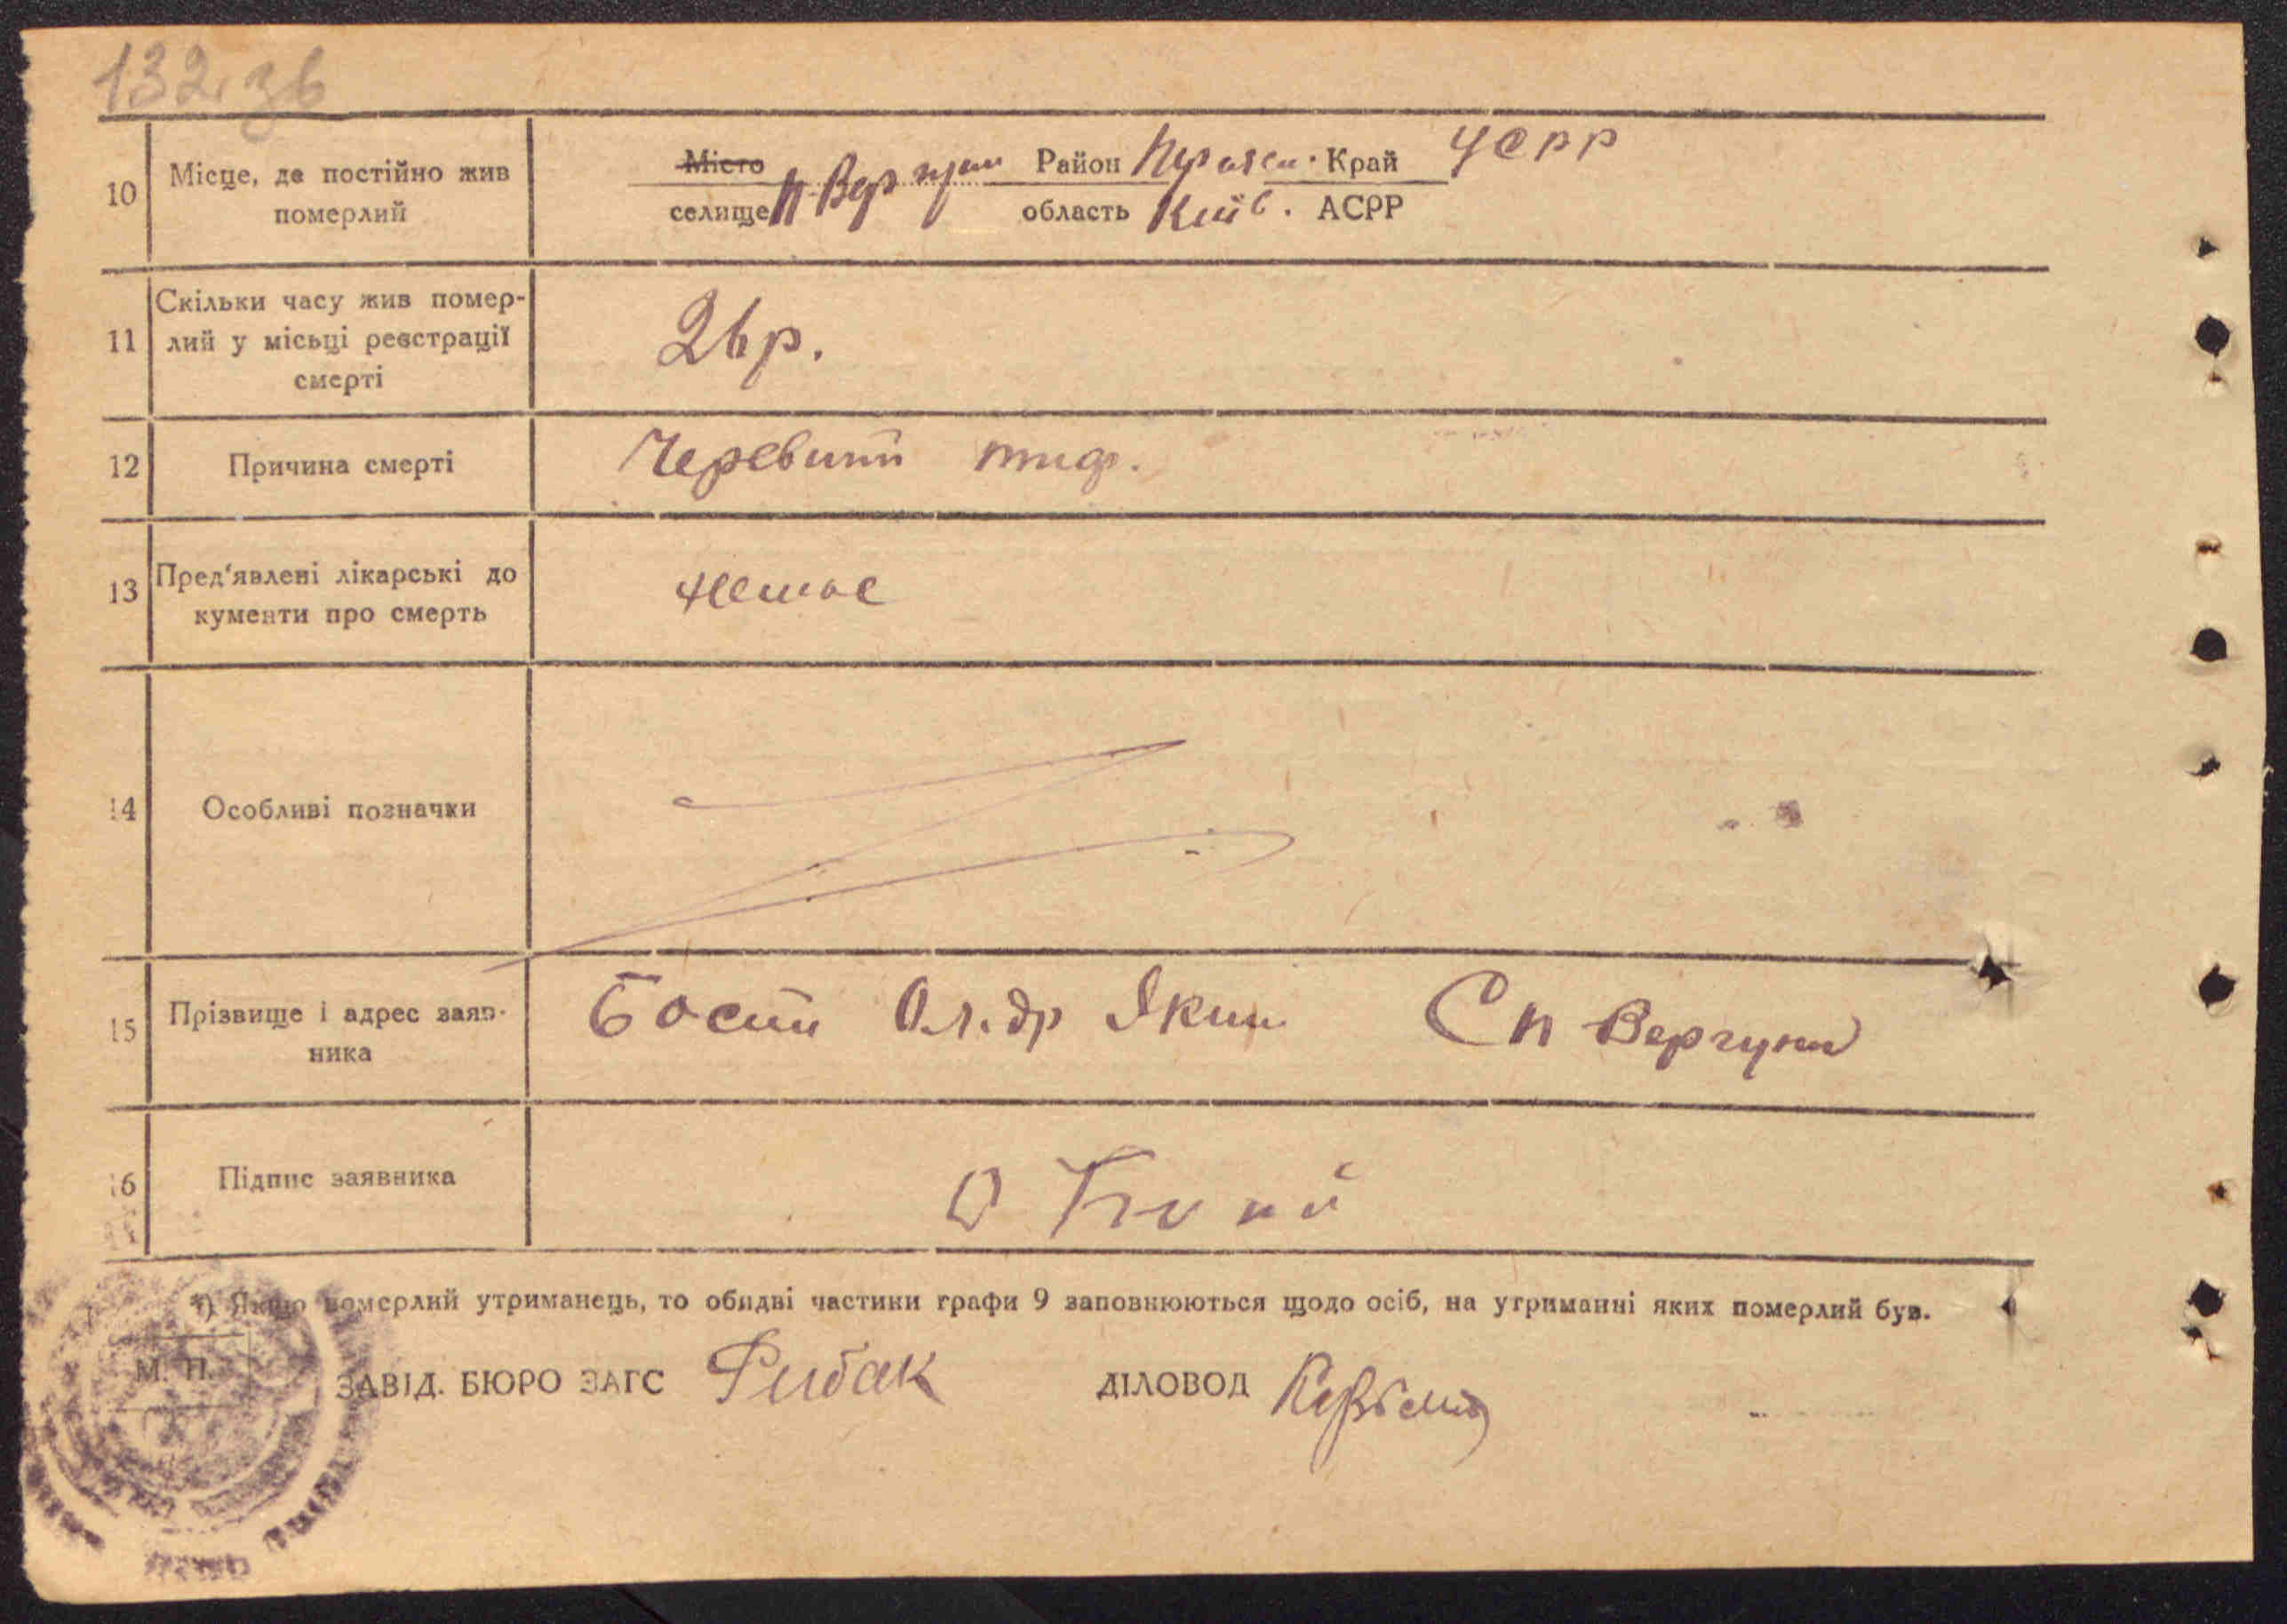 132 зв
10 Місце, де постійно жив померлий
Місто Район Переясл. Край УСРР
селище п-Вергуни область Київ. АСРР
11 Скільки часу жив помер-
лий у місьці реєстрації
смерті
26 р.
12 Причина смерті Черевний тиф.
13 Пред'явлені лікарські до
кументи про смерть
немає
14 Особливі позначки
15 Прізвище і адрес заяв-
ника
Ол-др Яким Сп Вергуни
16 Підпис заявника
*) Якщо померлий утриманець, то обидві частини графи 9 заповнюються щодо осіб, на утриманні яких померлий був.
М. П.
ЗАВІД. БЮРО ЗАГС Рибак ДІЛОВОД